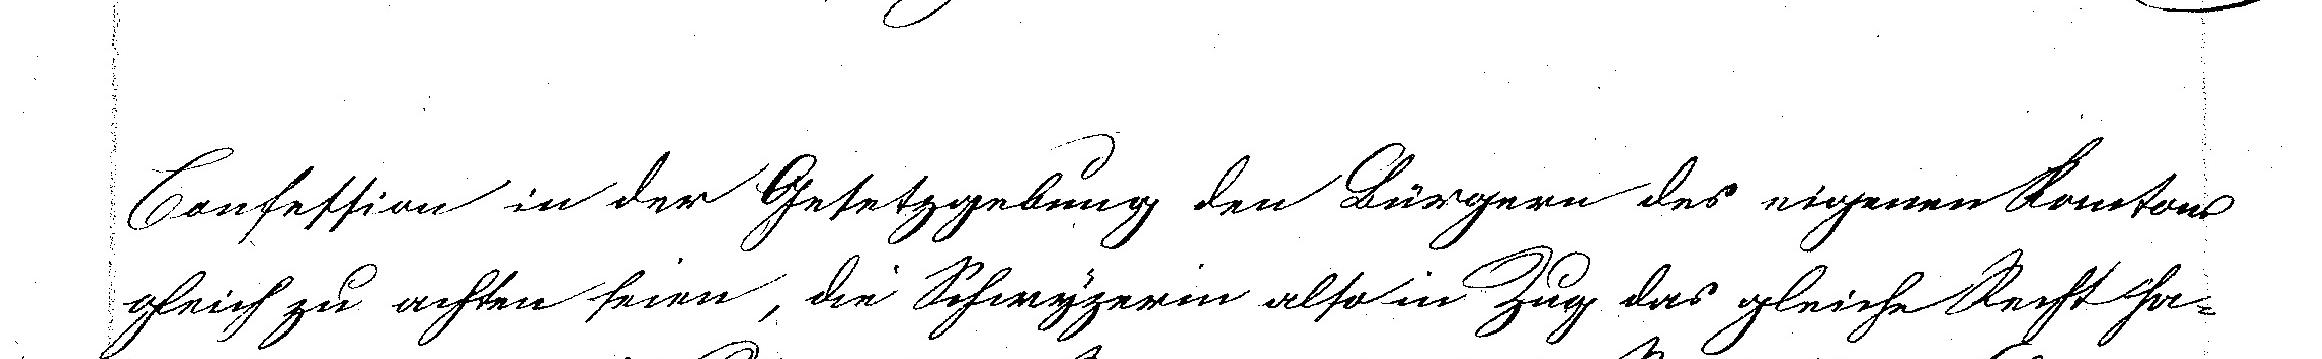 Confession in der Gesetzgebung den Bürgern des eigenen Kantons
gleich zu achten seien, die Schwyzerin also in Zug das gleiche Recht ha-